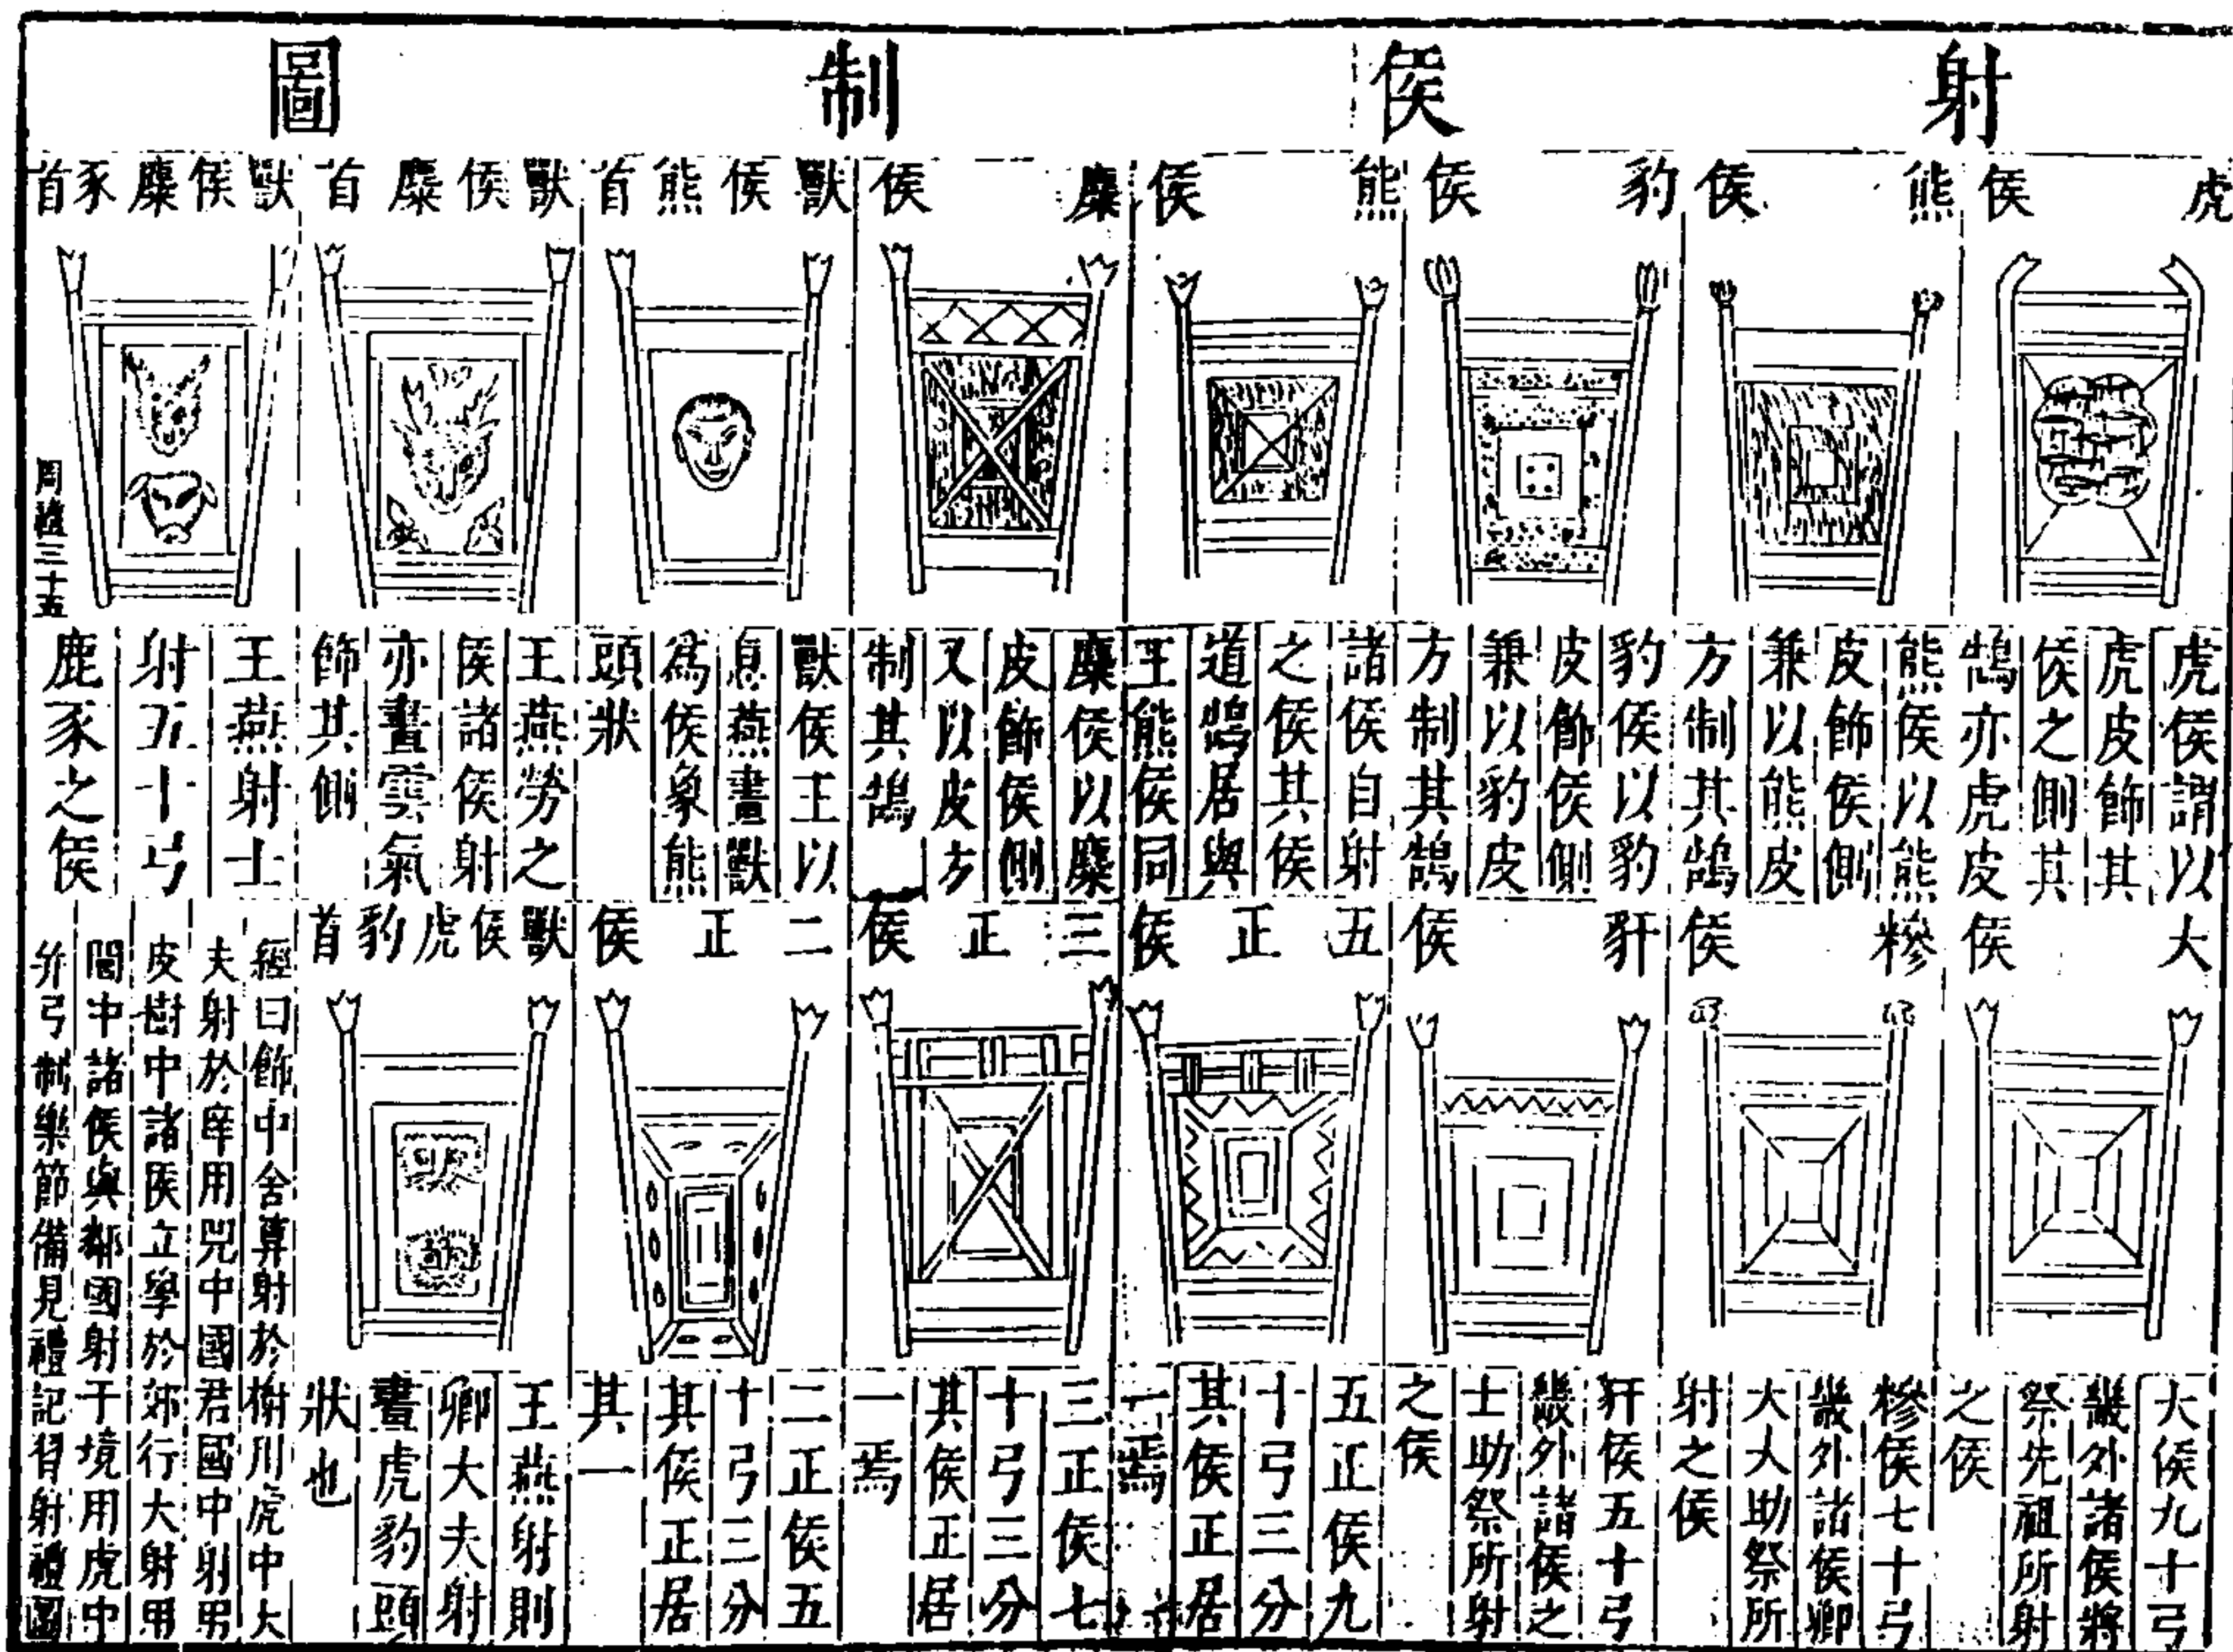 射侯制圖
虎侯
熊侯
豹侯
熊侯
麋侯
獸侯熊首
獸侯麋首
獸侯麋豕首
虎侯謂以
虎皮飾其
侯之側其
鵠亦虎皮
熊侯以熊
皮飾侯側
兼以熊皮
方制其鵠
豹侯以豹
皮飾侯側
兼以豹皮
方制其鵠
諸侯自射
之侯其侯
道鵠居與
王熊侯同
麋侯以麋
皮飾侯側
又以皮方
制其鵠
獸侯王以
息燕畫獸
爲侯象熊
頭狀
王燕勞之
侯諸侯射
亦畫雲氣
飾其側
王燕射士
射五十弓
鹿豕之侯
周禮三十五
大侯
糝侯
豻侯
五正侯
三正侯
二正侯
獸侯虎豹首
大侯九十弓
畿外諸侯將
祭先祖所射
之侯
糝侯七十弓
畿外諸侯卿
大夫助祭所
射之侯
豻侯五十弓
畿外諸侯之
士助祭所射
之侯
五正侯九
十弓三分
其侯正居
一焉
三正侯七
十弓三分
其侯正居
一焉
二正侯五
十弓三分
其侯正居
其一
王燕射則
卿大夫射
畫虎豹頭
狀也
經曰飾中舍算射於榭川虎中大
夫射於庠用兕中國君國中射用
皮樹中諸侯立學於郊行大射用
閭中諸侯與鄰國射于境用虎中
弁弓制樂節備見禮記習射禮圖